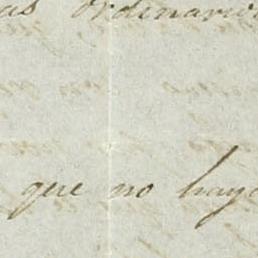 as ordinario
que no haya